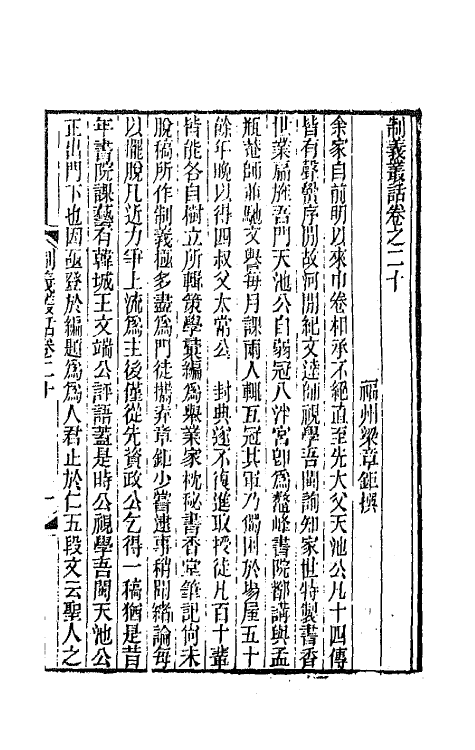 制義叢話卷之二十
福州梁章鉅撰
余家自前明以來巾卷相承不絕直至先大父天池公凡十四傳
皆有聲黌序間故河間紀文達師視學吾閩詢知家世特製書香
世業扁旌吾門天池公自弱冠入泮宮卽爲鰲峰書院都講與孟
瓶菴師並馳文譽每月課兩人輒互冠其軍乃獨困於場屋五十
餘年晚以得四叔父太常公 封典遂不復進取授徒凡百十輩
皆能各自樹立所輯策學彙編爲舉業家枕秘書香堂筆記尙未
脫稿所作制義極多盡爲門徒攜弆章鉅少嘗逮事稍聞緒論每
以擺脫凡近力爭上流爲主後僅從先資政公乞得一稿猶是昔
年書院課藝有韓城王文端公評語蓋是時公視學吾閩天池公
正出門下也因亟登於編題爲爲人君止於仁五段文云聖人之
制義叢話卷二十
一